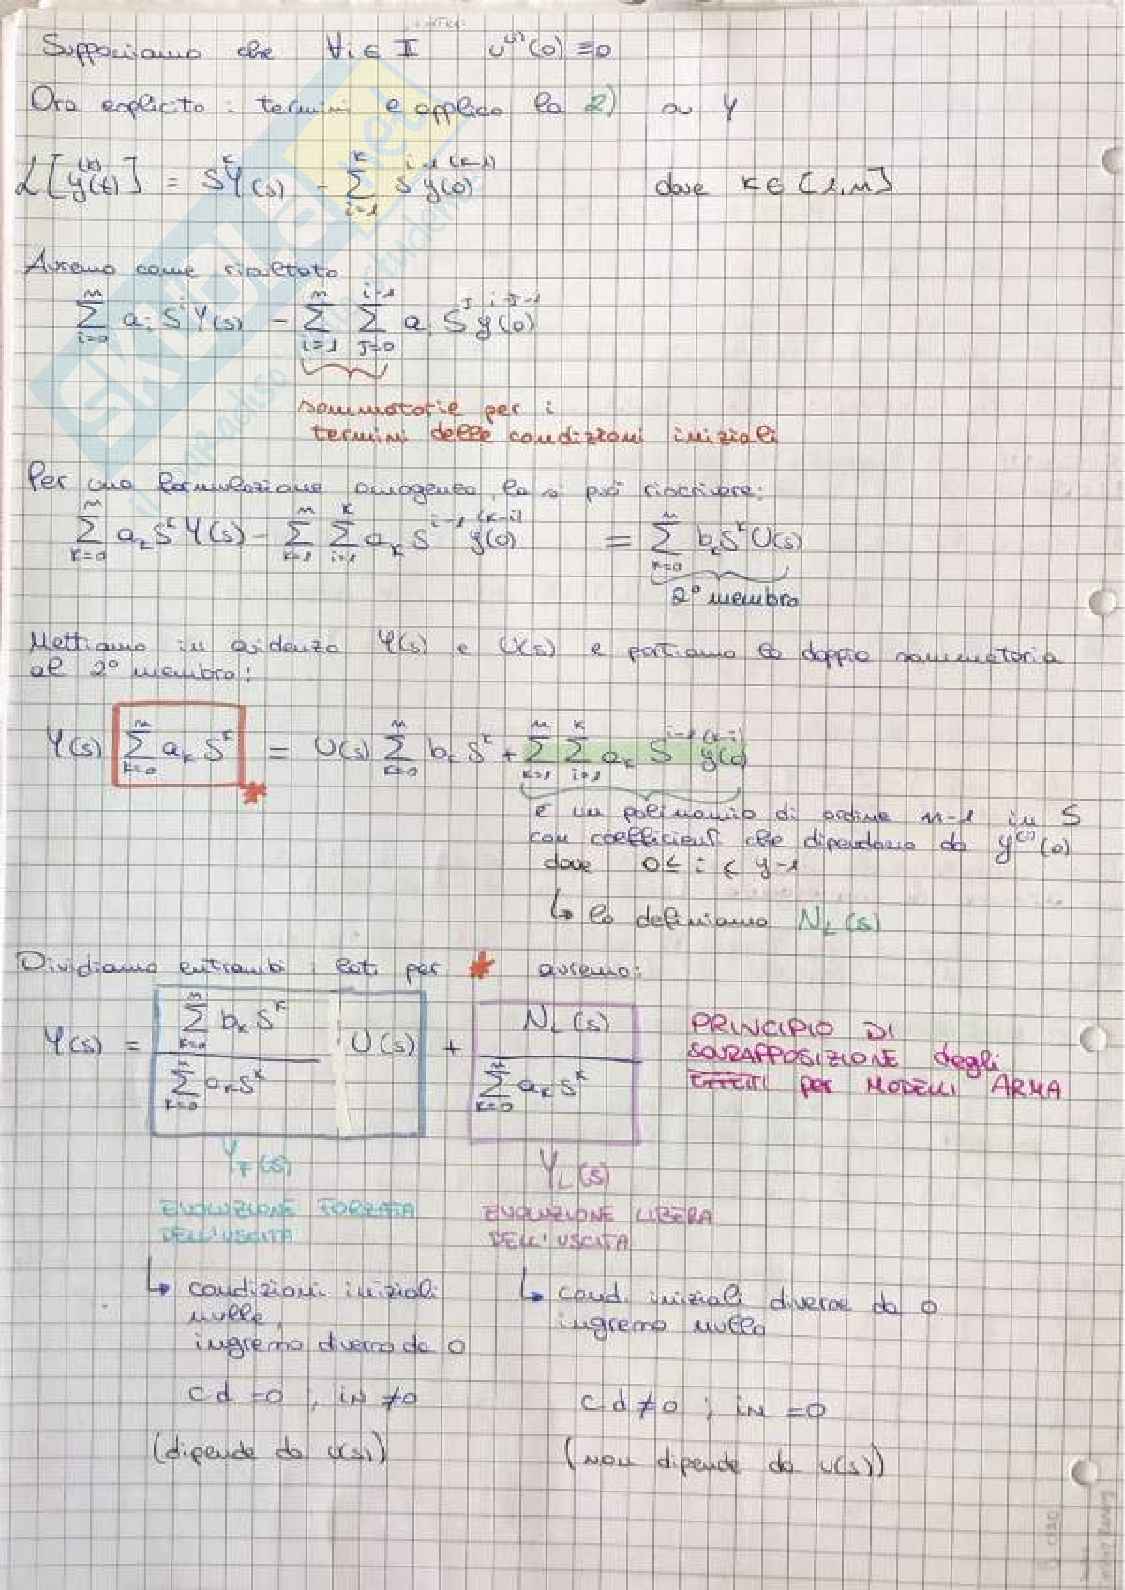 Supponiamo che ∀i ∈ I u⁽ⁱ⁾(0) ≡ 0
Ora esplicito i termini e applico la 2) su Y
L[y⁽ᵏ⁾(t)] = SᵏY(s) - Σ_{i=1}^{k} S^{i-1} y^{(k-i)}(0) dove k ∈ [1,n]
Avremo come risultato
Σ_{i=0}^{n} aᵢ Sⁱ Y(s) - Σ_{i=1}^{n} Σ_{J=0}^{i-1} aᵢ S^J y^{i-J-1}(0)
sommatorie per i
termini delle condizioni iniziali
Per una formulazione omogenea, la si può riscrivere:
Σ_{k=0}^{n} aₖ Sᵏ Y(s) - Σ_{k=1}^{n} Σ_{i=1}^{k} aₖ S^{i-1} y^{(k-i)}(0) = Σ_{k=0}^{m} bₖ Sᵏ U(s)
2° membro
Mettiamo in evidenza Y(s) e U(s) e portiamo la doppia sommatoria
al 2° membro:
Y(s) Σ_{k=0}^{n} aₖ Sᵏ = U(s) Σ_{k=0}^{m} bₖ Sᵏ + Σ_{k=1}^{n} Σ_{i=1}^{k} aₖ S^{i-1} y^{(k-i)}(0)
*
è un polinomio di ordine n-1 in S
con coefficienti che dipendono da y⁽ⁱ⁾(0)
dove 0 ≤ i ≤ y-1
↳ lo definiamo N_L(s)
Dividiamo entrambi i lati per * avremo:
Y(s) = (Σ_{k=0}^{m} bₖ Sᵏ / Σ_{k=0}^{n} aₖ Sᵏ) U(s) + N_L(s) / Σ_{k=0}^{n} aₖ Sᵏ
PRINCIPIO DI
SOVRAPPOSIZIONE degli
EFFETTI per MODELLI ARMA
Y_F(s) Y_L(s)
EVOLUZIONE FORZATA EVOLUZIONE LIBERA
DELL'USCITA DELL'USCITA
↳ condizioni iniziali ↳ cond. iniziali diverse da 0
nulle, ingresso nullo
ingresso diverso da 0
cd = 0 ; in ≠ 0 cd ≠ 0 ; in = 0
(dipende da u(s)) (non dipende da u(s))